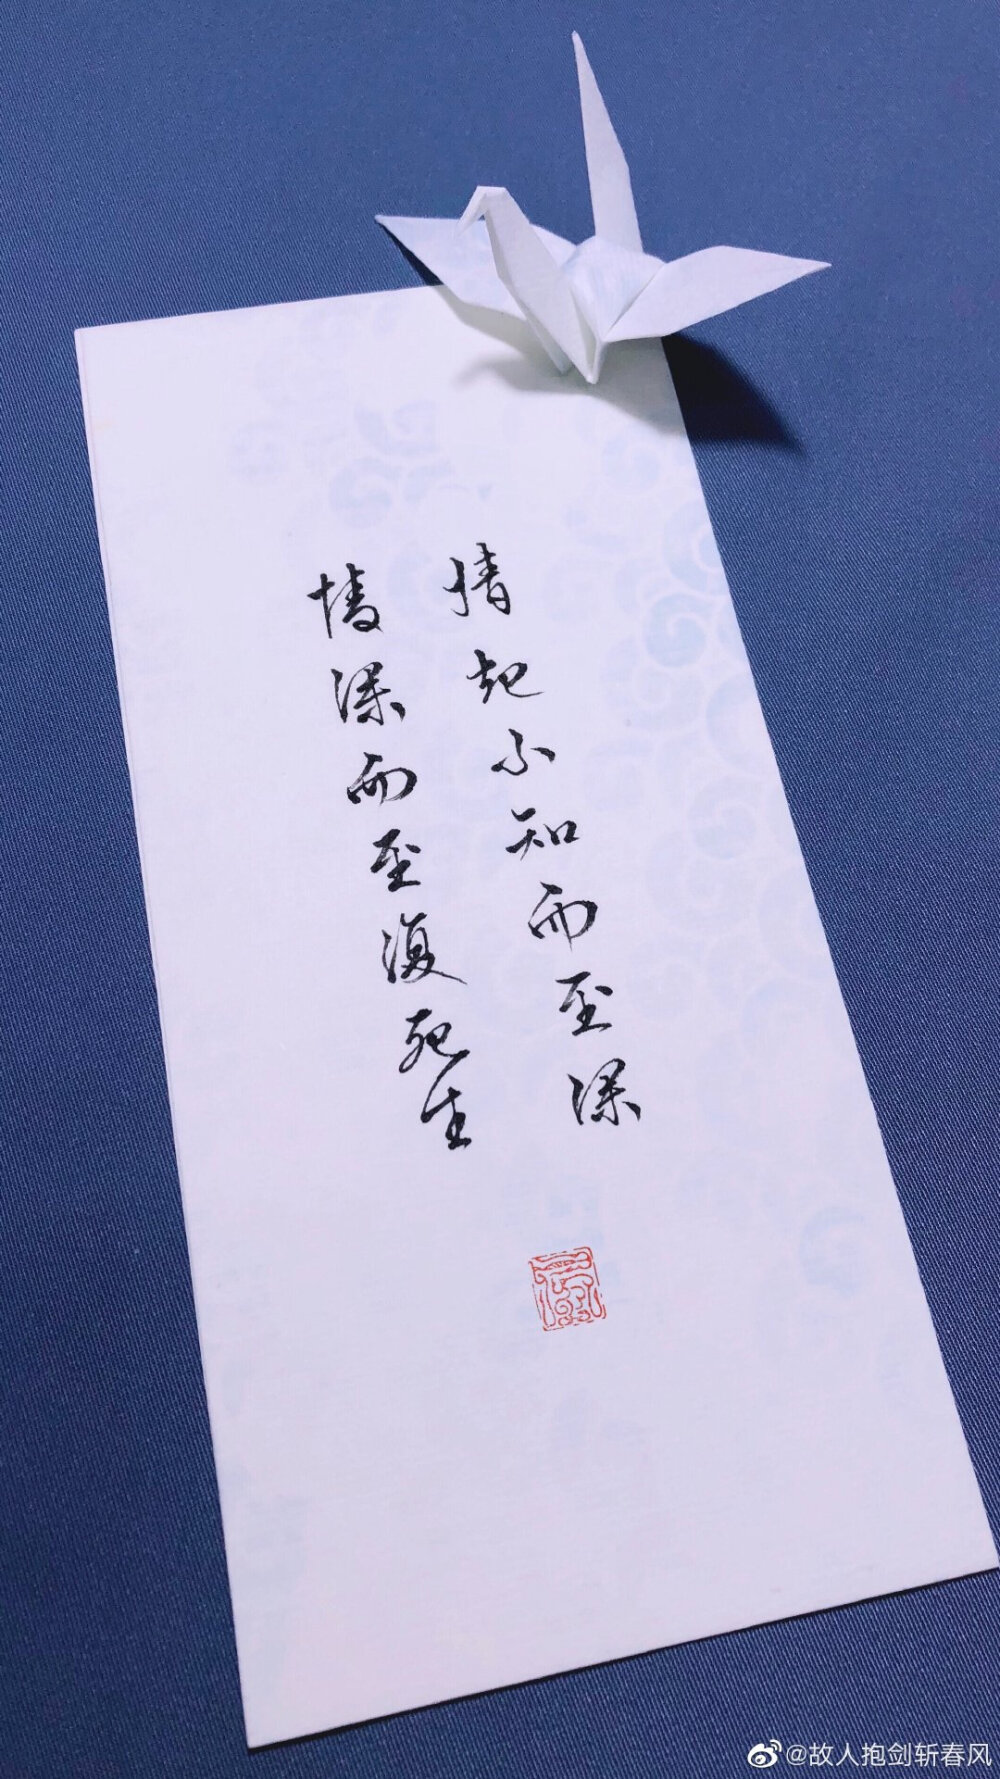 情起不知而至深
情深而至復死生
@故人抱剑斩春风